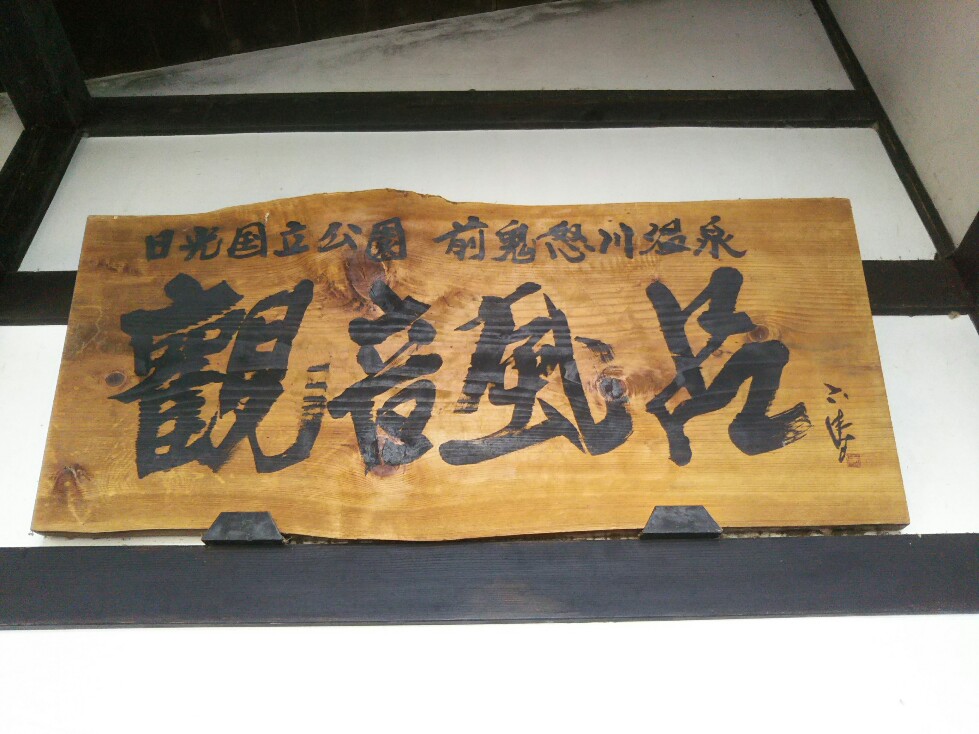 日光国立公園 前鬼怒川温泉
觀音風呂